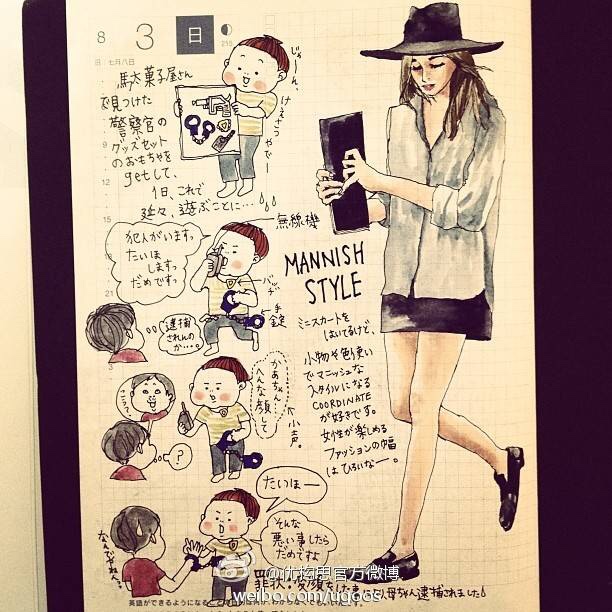 8
3
日
259
旧 七月八日
駄太菓子屋さん
で見つけた
警察官の
グッズセット
のおもちゃを
getして、
1日、これで
延々、遊ぶことに…
じゃーん、
けえさつやでー
無線機
犯人がいますっ
たいほ
しますっ
だめですっ
バッチ
手錠
逮捕
されんの
か…。
MANNISH
STYLE
ミニスカートを
はいてるけど、
小物や色使い
でマニッシュな
スタイルになる
COORDINATE
が好きです。
女性が楽しめる
ファッションの幅
はひろいなー。
こうって
?
かあちゃん
へんな顔して
小声。
たいほー
そんな
悪い事したら
だめですよ
なんでやねん。
罪状：変顔
母ちゃん逮捕されました
英語ができるようになること
@优格思官方微博
weibo.com/ugoos